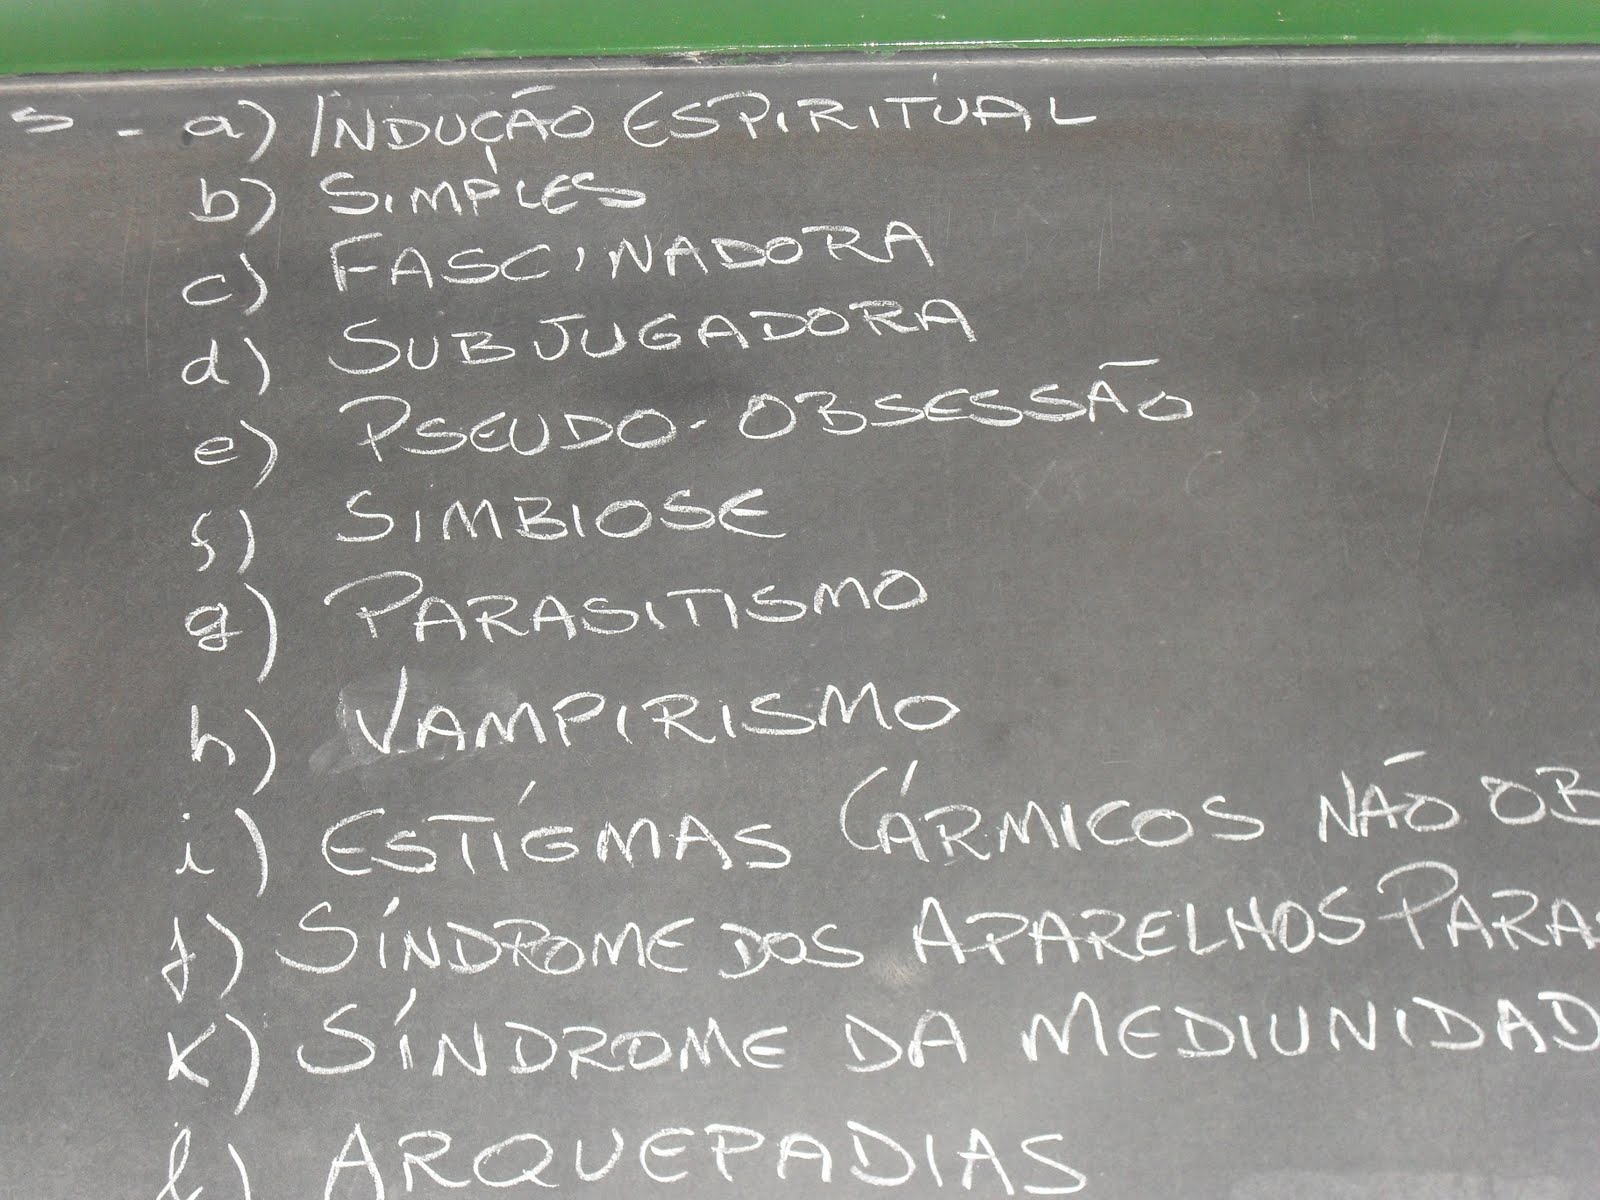 s - a) INDUÇÃO ESPIRITUAL
b) SIMPLES
c) FASCINADORA
d) SUBJUGADORA
e) PSEUDO-OBSESSÃO
f) SIMBIOSE
g) PARASITISMO
h) VAMPIRISMO
i) ESTÍGMAS CÁRMICOS NÃO OB
j) SÍNDROME DOS APARELHOS PARAS
k) SÍNDROME DA MEDIUNIDAD
l) ARQUEPADIAS